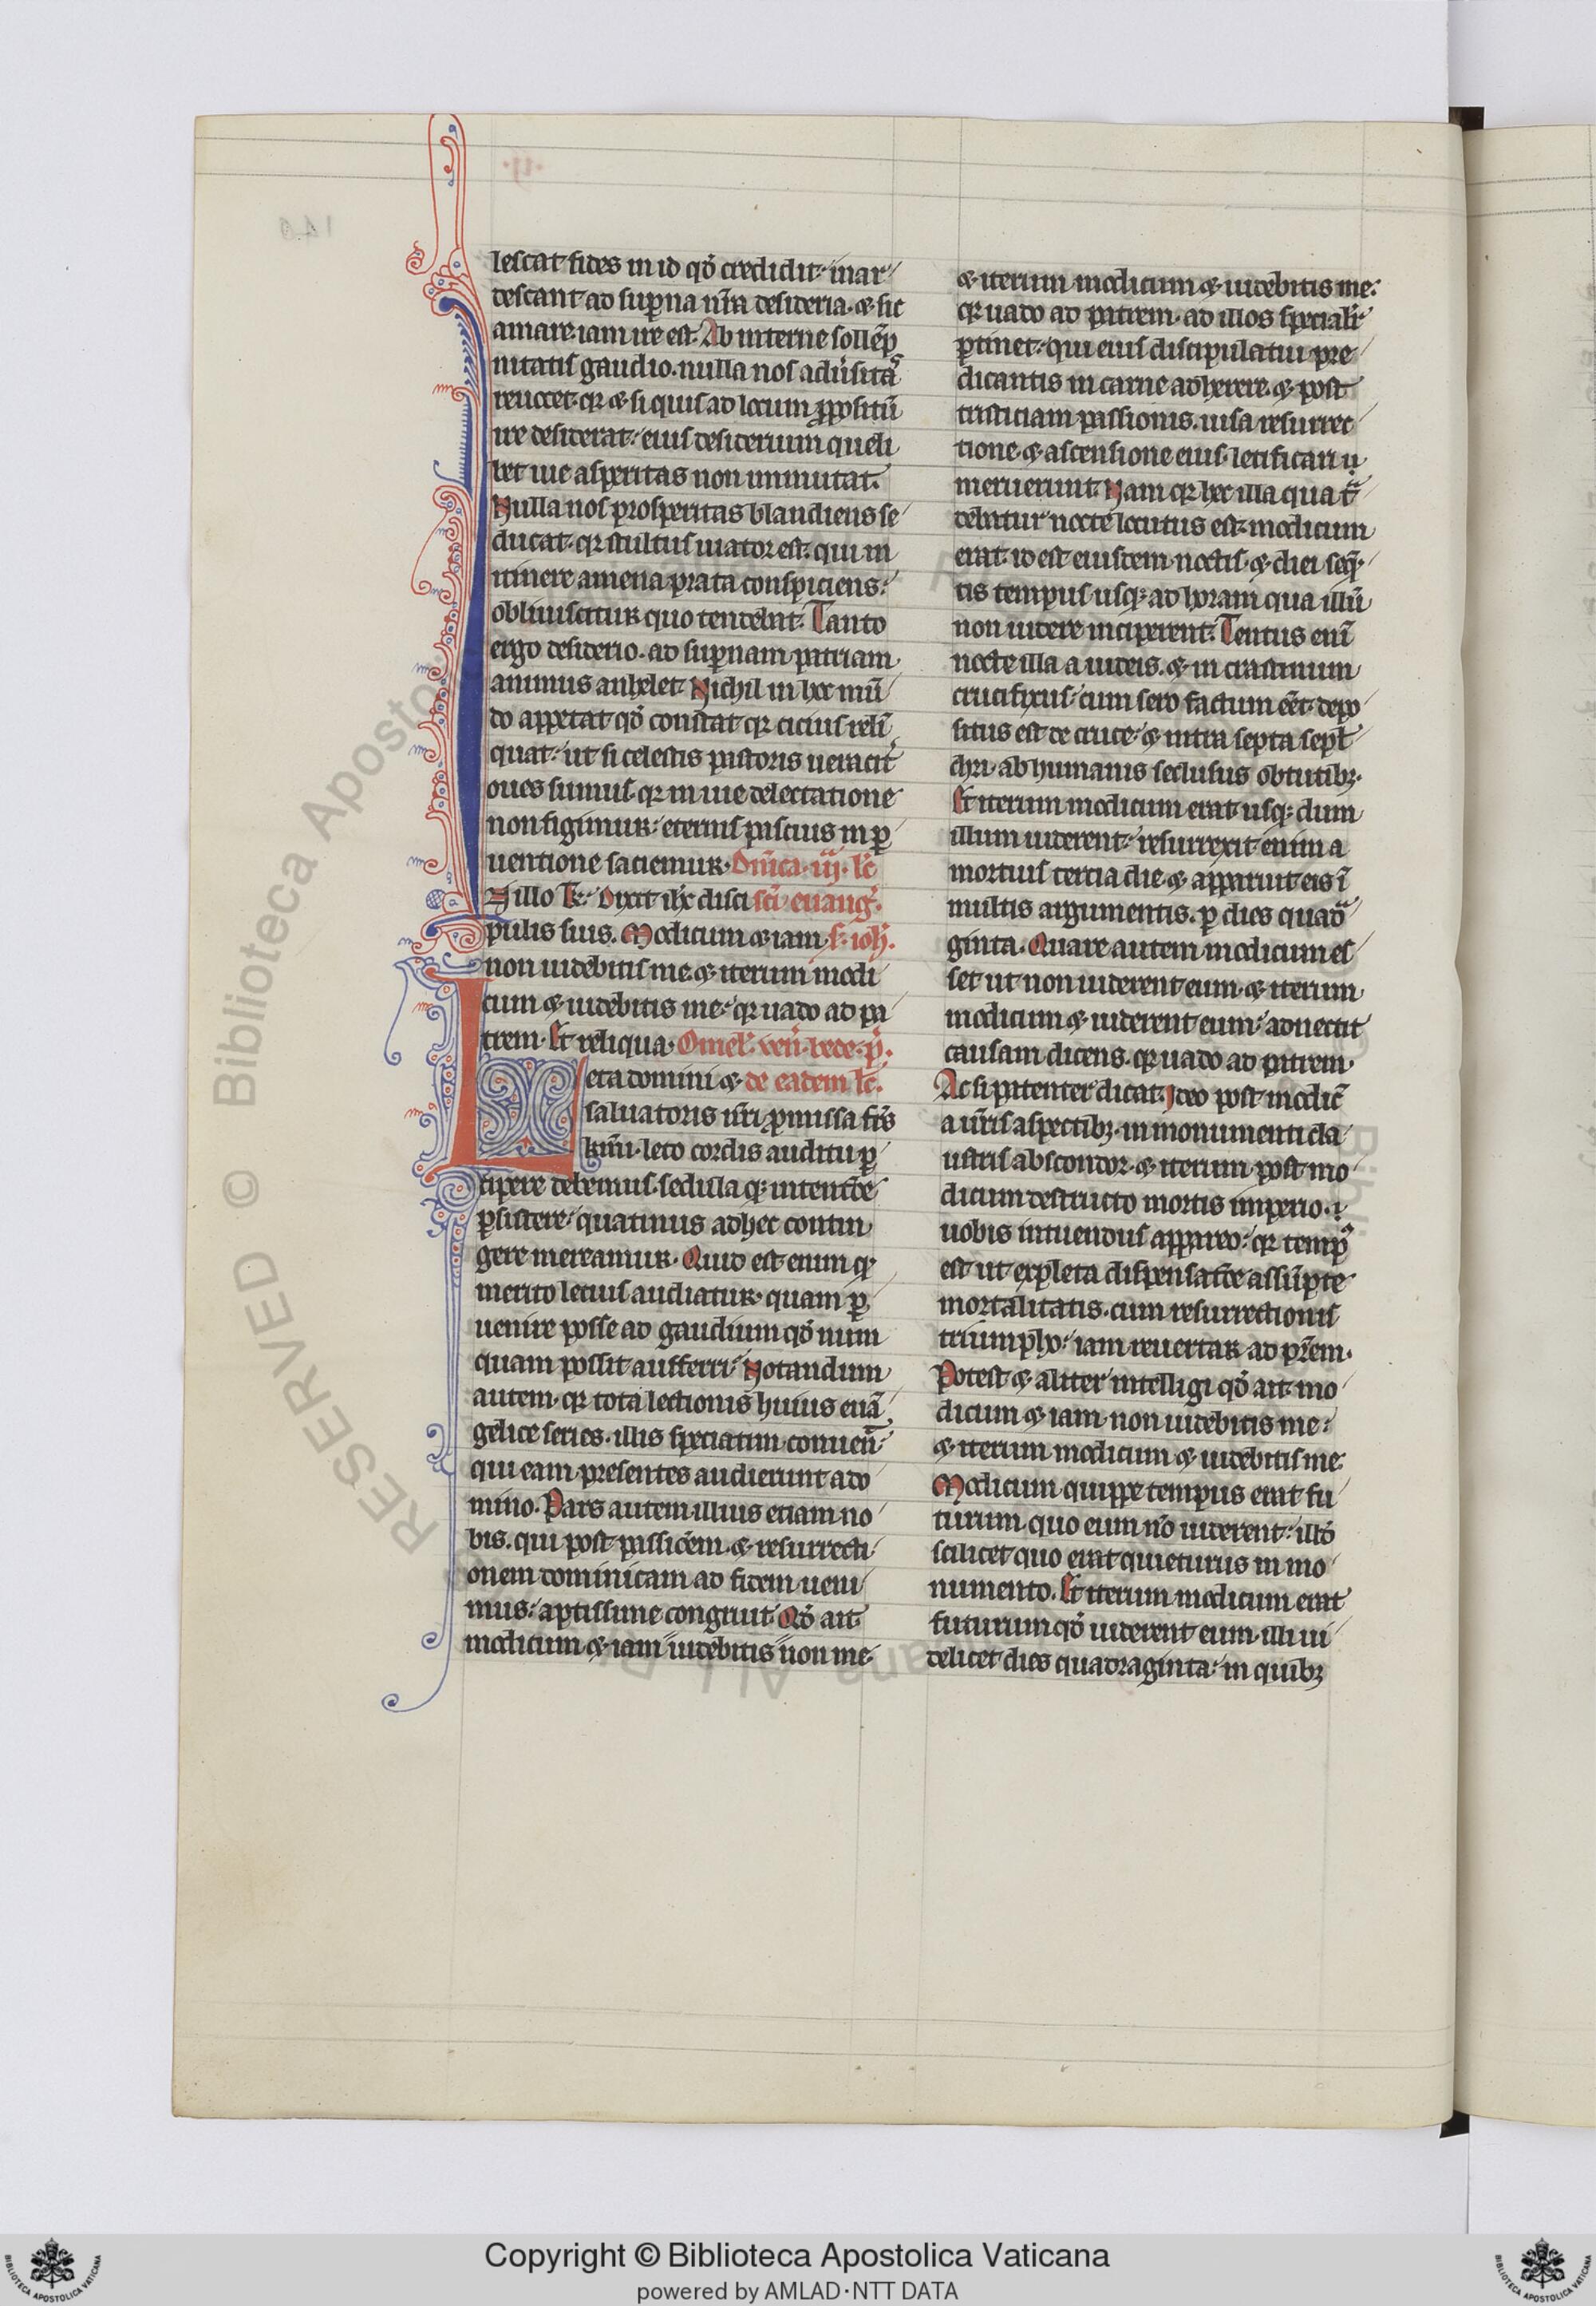 lescat fides in id qđ credidit· inar
descant ad suꝑna nr̄a desideria· ⁊ sic
amare iam ire est· Ab interne sollēp
nitatis gaudio· nulla nos adu̾sitas
reuocet· qꝛ ⁊ si quis ad locum ꝓpositū
ire desiderat· eius desiderium queli
bet uie asperitas non inmutat·
Nulla nos prosperitas blandiens se
ducat· qꝛ stultus uiator est· qui in
itinere amena prata conspiciens·
obliuiscitur quo tendebat· Tanto
ergo desiderio· ad suꝑnam patriam
animus anhelet· Nichil in hoc mū
do appetat qđ constat qꝛ cicius relī
quat· ut si celestis pastoris ueracit̾
oues sumus· qꝛ in uie delectatione
non figimur· eternis pascuis in ꝑ
uentione saciemur· Dn̄ica· iij· lc̄
In illo t̄· Dixit ih̄c disci sc̄i euang̾·
pulis suis· Modicum ⁊ iam s̄· ioh̄·
non uidebitis me ⁊ iterum modi
cum ⁊ uidebitis me· qꝛ uado ad pa
trem· Et reliqua· Omel̾· ven̾· bede· p̾·
Leta domini ⁊ de eadem lc̄·
saluatoris nr̄i ꝓmissa fr̄s
km̄i· leto cordis auditu ꝑ
cipere debemus· sedula qꝫ intentōe
ꝑsistere· quatinus ad hec contin
gere mereamur· Quid est enim qđ
merito lecius audiatur· quam ꝑ
uenire posse ad gaudium qđ num
quam possit aufferri· Notandum
autem· qꝛ tota lectionis huius euā
gelice series· illis speciatim conuen̄·
qui eam presentes audierunt a do
mino· Pars autem illius etiam no
bis· qui post passiōem· ⁊ resurrecti
onem dominicam ad fidem ueni
mus· aptissime congruit· Qđ ait
modicum ⁊ iam ̎uidebitis ̎non me
⁊ iterum modicum ⁊ uidebitis me·
qꝛ uado ad patrem· ad illos speciali̾
ꝑtinet· qui eius discipulatui pre
dicantis in carne adherere· ⁊ post
tristiciam passionis· uisa resurrec
tione ⁊ ascensione eius· letificari
meruerunt· Nam qꝛ hec illa qua t̾
debatur nocte locutus est· modicum
erat· id est eiusdem noctis· ⁊ diei seq̄
tis tempus usqꝫ ad horam qua illū
non uidere inciperent· Tentus enī
nocte illa a iudeis· ⁊ in crastinum
crucifixus· cum sero factum eēt· depo
situs est de cruce· ⁊ intra septa sepl̾
chri· ab humanis seclusus obtutibꝫ·
Et iterum modicum erat usqꝫ dum
illum uiderent· resurrexit enim a
mortuis tertia die· ⁊ apparuit eis ī
multis argumentis· ꝑ dies quadͣ
ginta· Quare autem modicum es
set ut non uiderent eum· ⁊ iterum
modicum ⁊ uiderent eum· adnectit
causam dicens· qꝛ uado ad patrem·
Ac si patenter dicat· Ideo post modic̄
a ur̄is aspectibꝫ· in monumenti cla
ustris abscondor· ⁊ iterum post mo
dicum destructo mortis imperio·
uobis intuendus appareo· qꝛ temp̾
est ut expleta dispensatōe assūpte
mortalitatis· cum resurrectionis
triumpho· iam reuertar ad pr̄em·
Potest ⁊ aliter intelligi qđ ait· mo
dicum ⁊ iam non uidebitis me·
⁊ iterum modicum ⁊ uidebitis me·
Modicum quippe tempus erat fu
turum quo eum nō uiderent· illđ
scilicet quo erat quieturus in mo
numento· Et iterum modicum erat
futurum qđ uiderent eum· illi ui
delicet dies quadraginta· in quibꝫ
RESERVED © Biblioteca Aposto
Copyright © Biblioteca Apostolica Vaticana
powered by AMLAD·NTT DATA